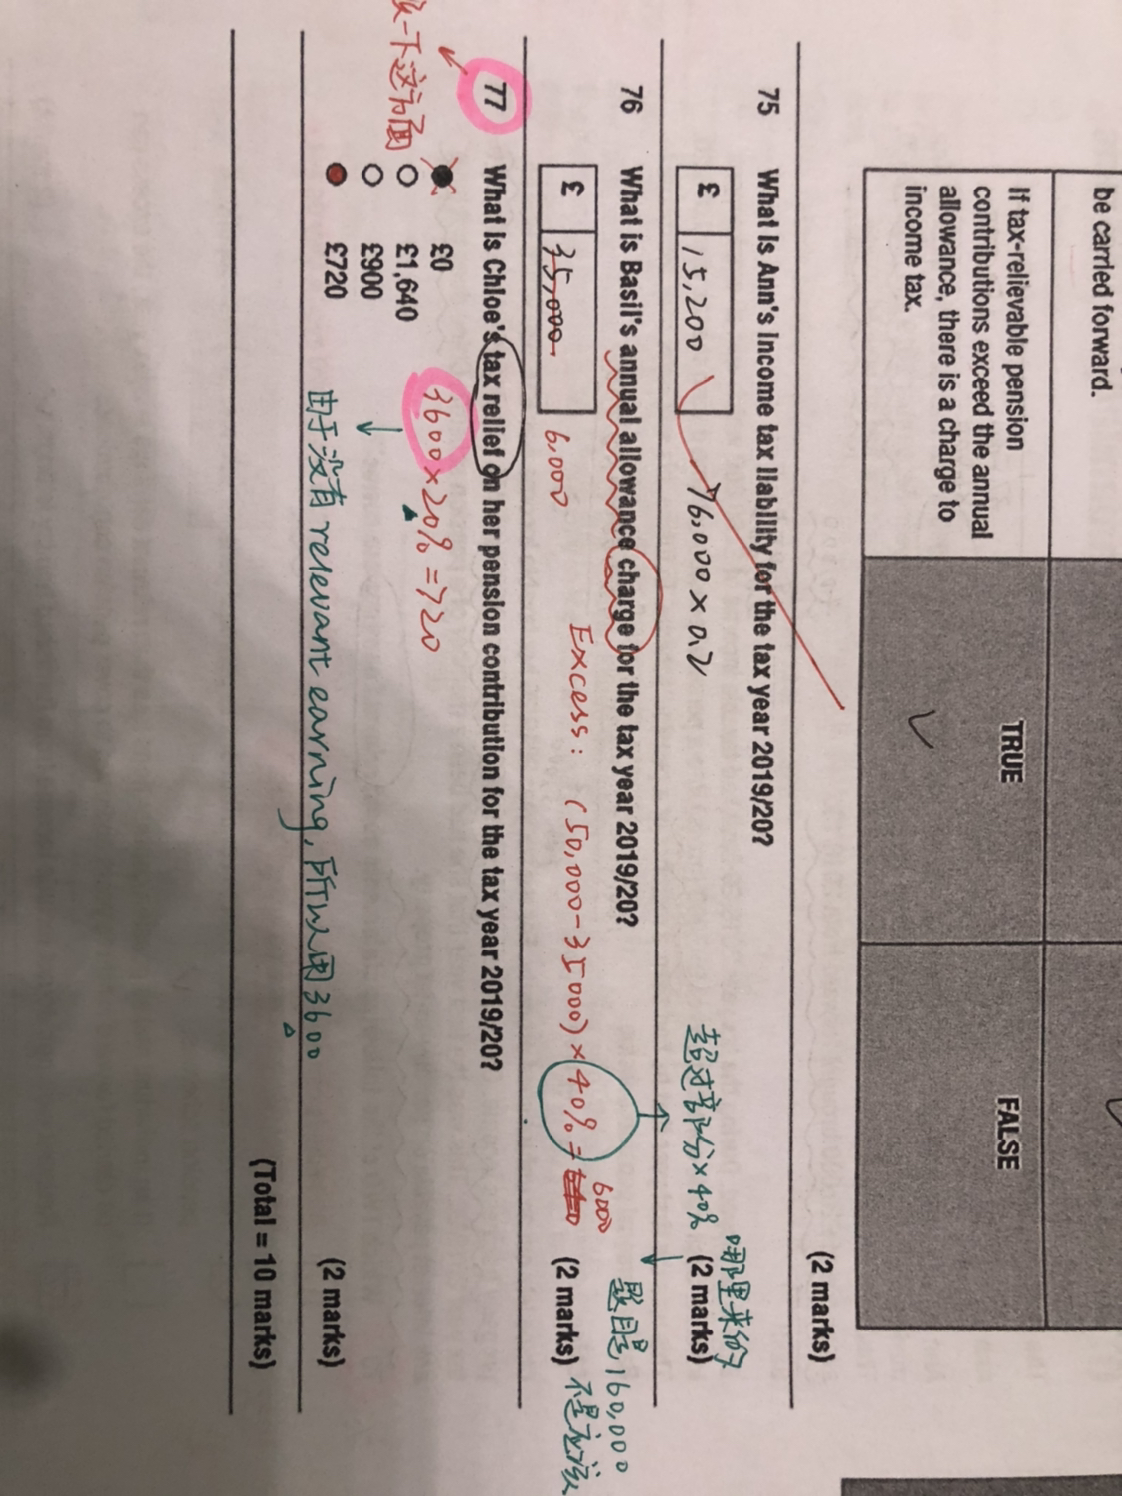 be carried forward.
If tax-relievable pension
contributions exceed the annual
allowance, there is a charge to
income tax.
TRUE
FALSE
(2 marks)
75 What is Ann's income tax liability for the tax year 2019/20?
£ 15,200
76,000 × 0.2
超过部分×40%
哪里来的
(2 marks)
76 What is Basil's annual allowance charge for the tax year 2019/20?
£ 35,000
6,000
Excess: (50,000-35000) × 40% =
6000
题目是160,000
不是应该
(2 marks)
77 What is Chloe's tax relief on her pension contribution for the tax year 2019/20?
一下这方面
£0
£1,640
£900
£720
3600 × 20% = 720
由于没有 relevant earning, 所以用3600
(2 marks)
(Total = 10 marks)